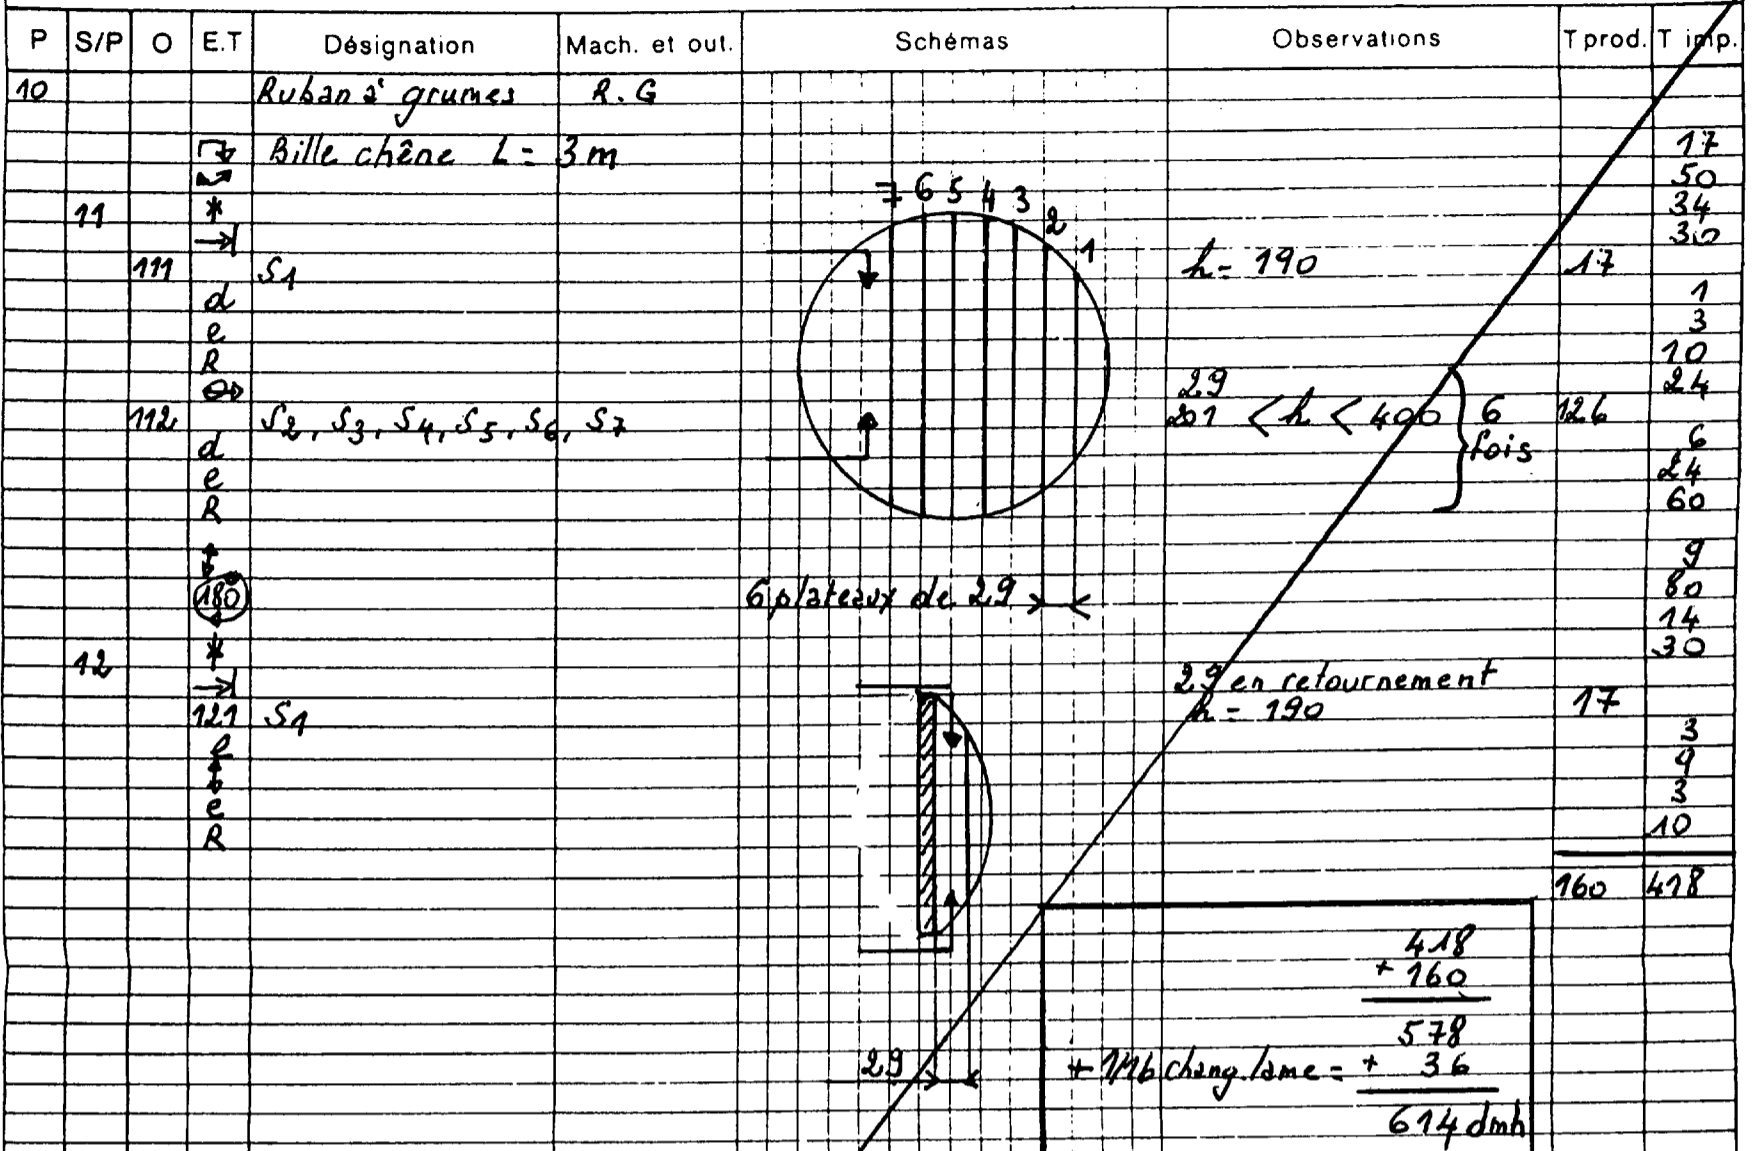 P S/P O E.T Désignation Mach. et out. Schémas Observations T prod. T imp.
10 Ruban à grumes R.G
Bille chêne L = 3m 17
50
7 6 5 4 3 2 1
11 34
30
111 S1 h = 190 17
d 1
e 3
R 10
29 24
112 S2, S3, S4, S5, S6, S7 201 < h < 400 6 fois 126
d 6
e 24
R 60
9
180° 6 plateaux de 29 80
14
12 30
29 en retournement
121 S1 h = 190 17
3
9
e 3
R 10
160 418
418
+ 160
578
29 + 1/16 chang. lame = + 36
614 dmh